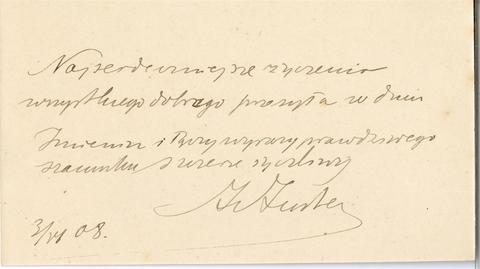 Najserdeczniejsze życzenia
wszystkiego dobrego przesyła w dniu
Imienin i łączy wyrazy prawdziwego
szacunku szczerze życzliwy
3/VI 08.